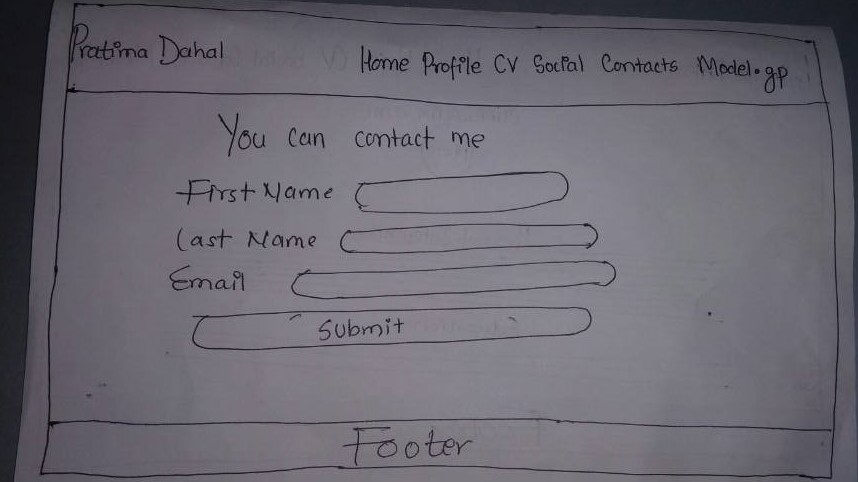 Pratima Dahal
Home Profile CV Social Contacts Model.gp
You can contact me
First Name
Last Name
Email
Submit
Footer